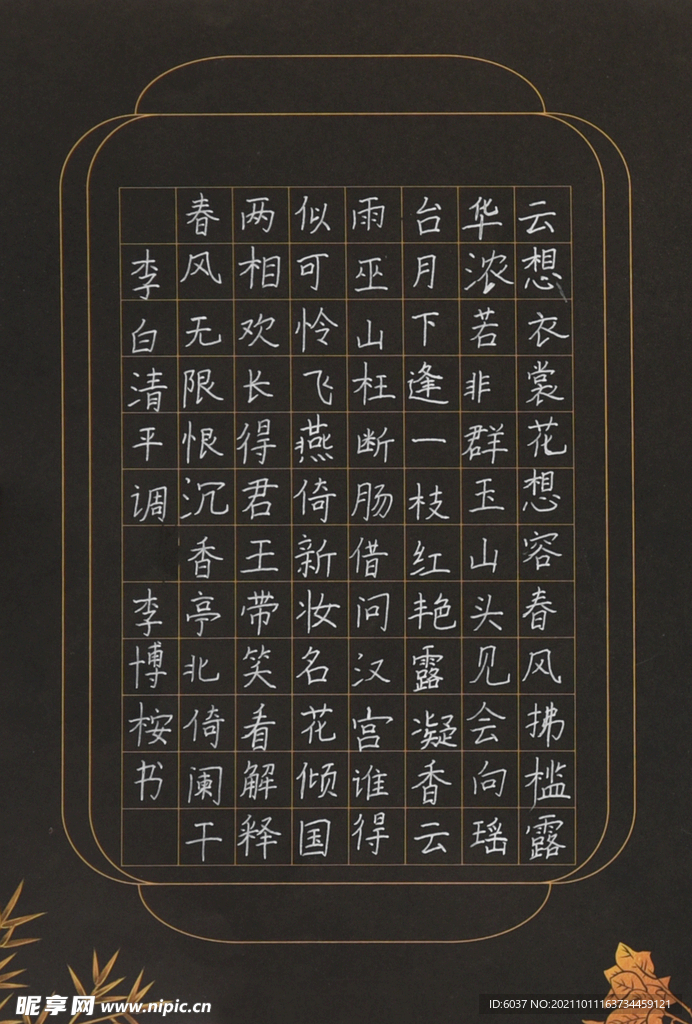 云想衣裳花想容春风拂槛露
华浓若非群玉山头见会向瑶
台月下逢一枝红艳露凝香云
雨巫山枉断肠借问汉宫谁得
似可怜飞燕倚新妆名花倾国
两相欢长得君王带笑看解释
春风无限恨沉香亭北倚阑干
李白清平调 李博桉书
昵享网 www.nipic.cn
ID:6037 NO:20211011163734459121